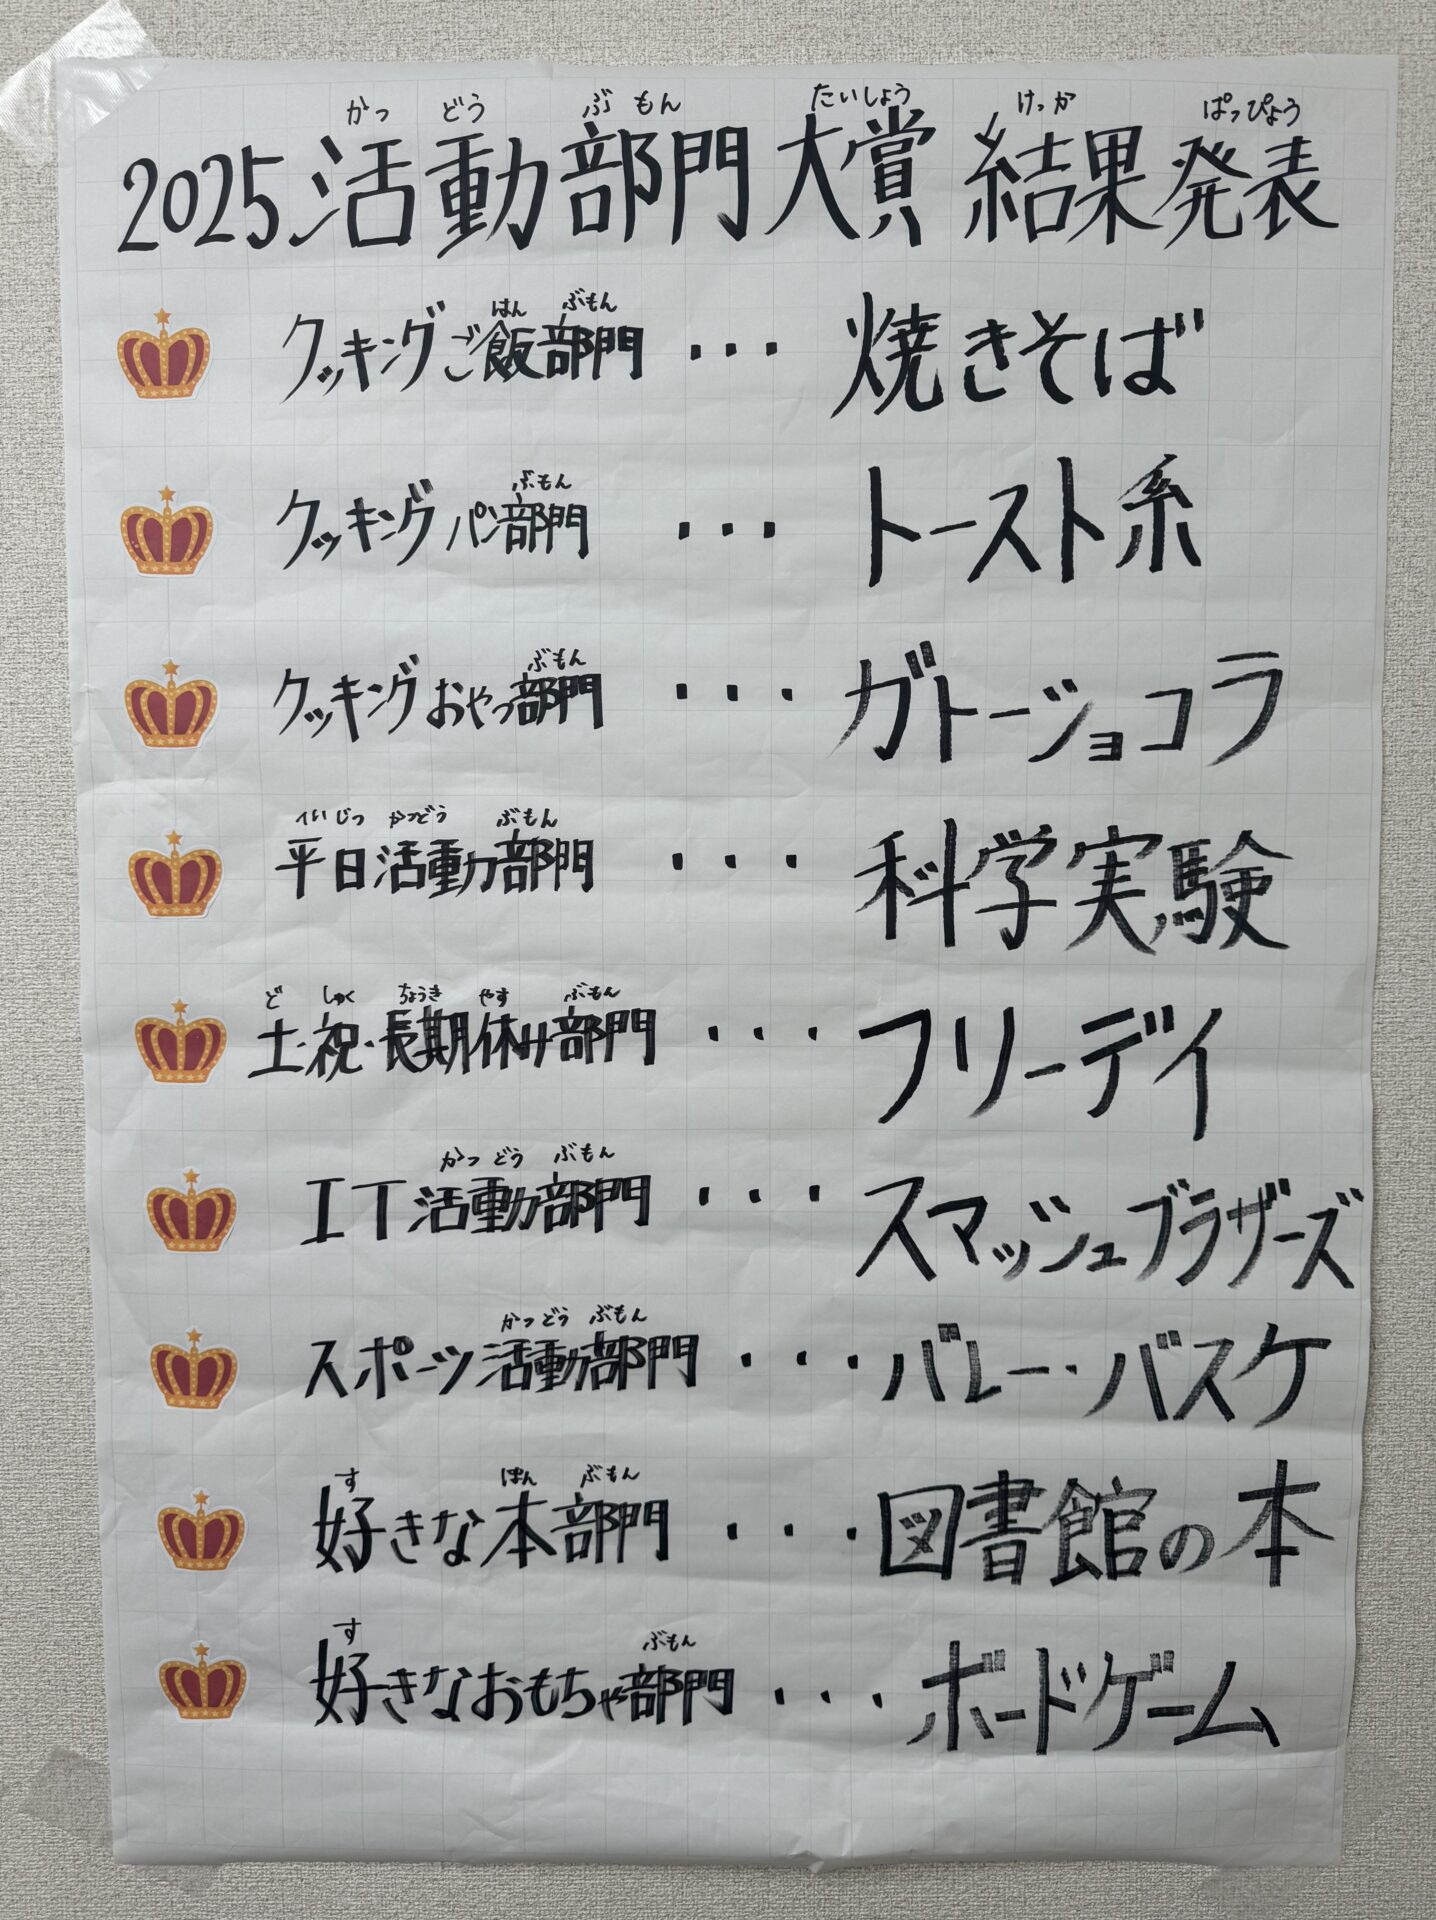 かつ どう ぶ もん たいしょう けっか ぱっぴょう
2025 活動部門大賞 結果発表
はん ぶもん
クッキングご飯部門 ・・・ 焼きそば
ぶもん
クッキングパン部門 ・・・ トースト系
ぶもん
クッキングおやつ部門 ・・・ ガトーショコラ
へいじつ かつどう ぶもん
平日活動部門 ・・・ 科学実験
ど しゅく ちょうき やす ぶもん
土・祝・長期休み部門 ・・・ フリーデイ
かつ どう ぶもん
IT活動部門 ・・・ スマッシュブラザーズ
かつ どう ぶもん
スポーツ活動部門 ・・・ バレー・バスケ
す ほん ぶもん
好きな本部門 ・・・ 図書館の本
す ぶもん
好きなおもちゃ部門 ・・・ ボードゲーム